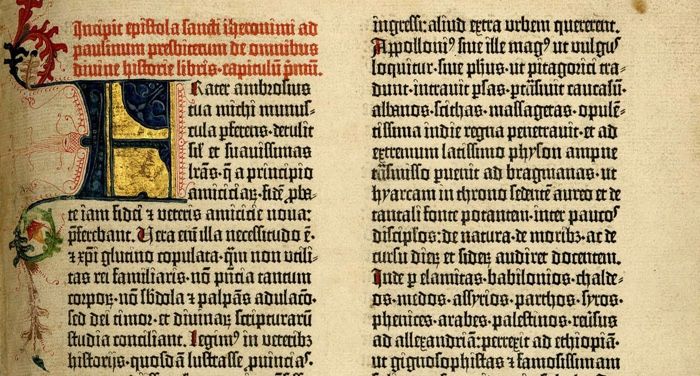 Incipit epistola sancti iheronimi ad
paulinum presbiterum de omnibus
divine historie libris · capitulū p̄mū.
Frater ambrosius
tua michi munus-
cula ꝑferens · detulit
sil' et suavissimas
lr̄as · q̄ a principio
amiciciaꝝ · fidē ꝓba-
te iam fidei ⁊ veteris amicicie nova:
p̄ferebant. Vera em̄ illa necessitudo ē ·
⁊ xp̄i glutino copulata · qm̄ non utili-
tas rei familiaris · nō p̄ncia tantum
corpoꝝ · nō sb̄dola ⁊ palpās adulacō ·
sed dei timor · et divinaꝝ scripturarū
studia conciliant. Legim⁹ in veteribꝫ
historijs · quosdā lustrasse ꝓuīcias ·
ingressi: aliud extra urbem quererent.
Appolloni⁹ siue ille mag⁹ ut vulgus
loquitur · siue ph̄us · ut pitagorici tra-
dunt · intrauit ꝑsas · ꝑtrāsiuit caucasū ·
albanos · scithas · massagetas · opulē-
tissima indie regna penetrauit · et ad
extremum latissimo physon ampne
trāsmisso ꝑuenit ad bragmanas · ut
hyarcam in throno sedentē aureo et de
tantali fonte potantem · inter paucos
discipĺos · de natura · de moribꝫ · ac de
cursu dieꝝ et sideꝝ audiret docentem.
Inde ꝑ elamitas · babilonios · chalde-
os · medos · assyrios · parthos · syros ·
phenices · arabes · palestinos · reūsus
ad allexandriā: perrexit ad ethiopiā ·
ut gignosophistas ⁊ famosissimam